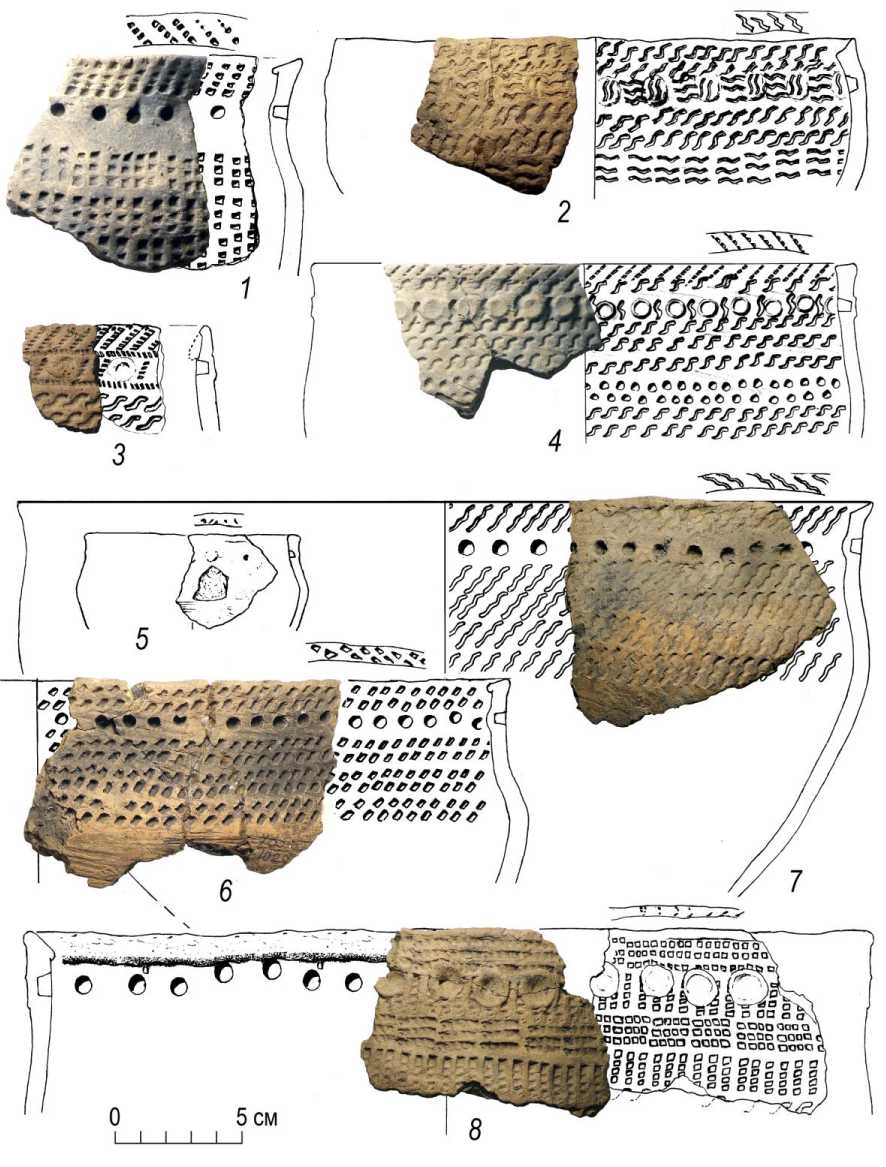 1
2
3
4
5
6
7
0 5 см
8